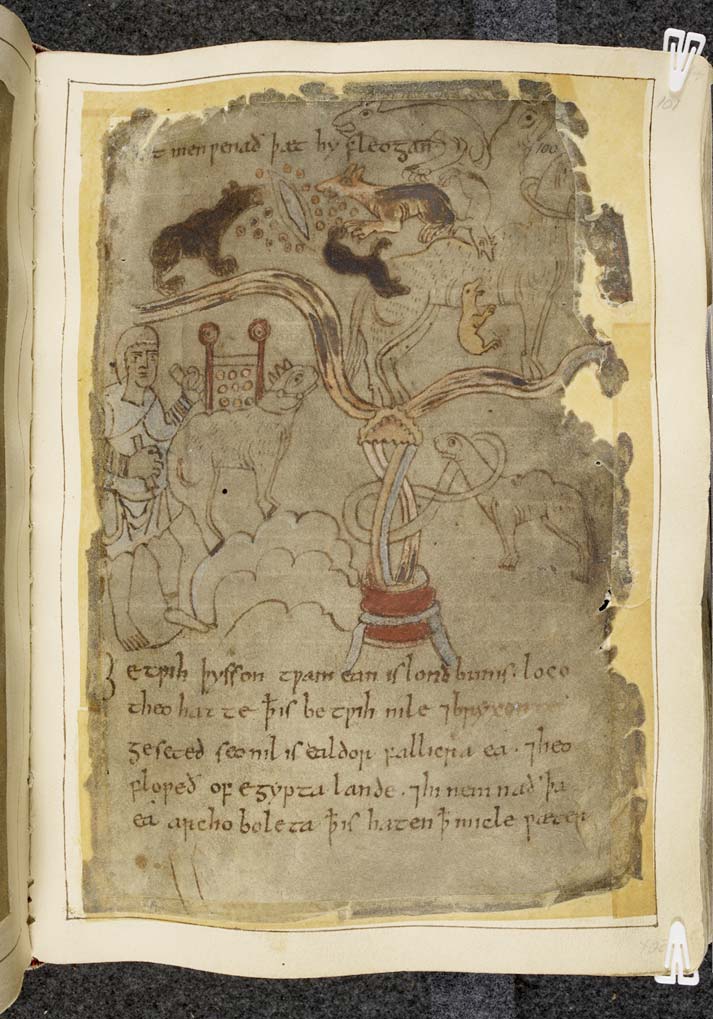 menwenað þæt hy fleogan
100
101
Betwih þysson twam ean is londbunis. loco
theo hatte ꝥis betwih nile ⁊bryxonte
geseted seo nil is ealdor fallicra ea. ⁊heo
floweð of egypta lande. ⁊hi nemnað þa
ea archoboleta ꝥis haten ꝥ micle wæter